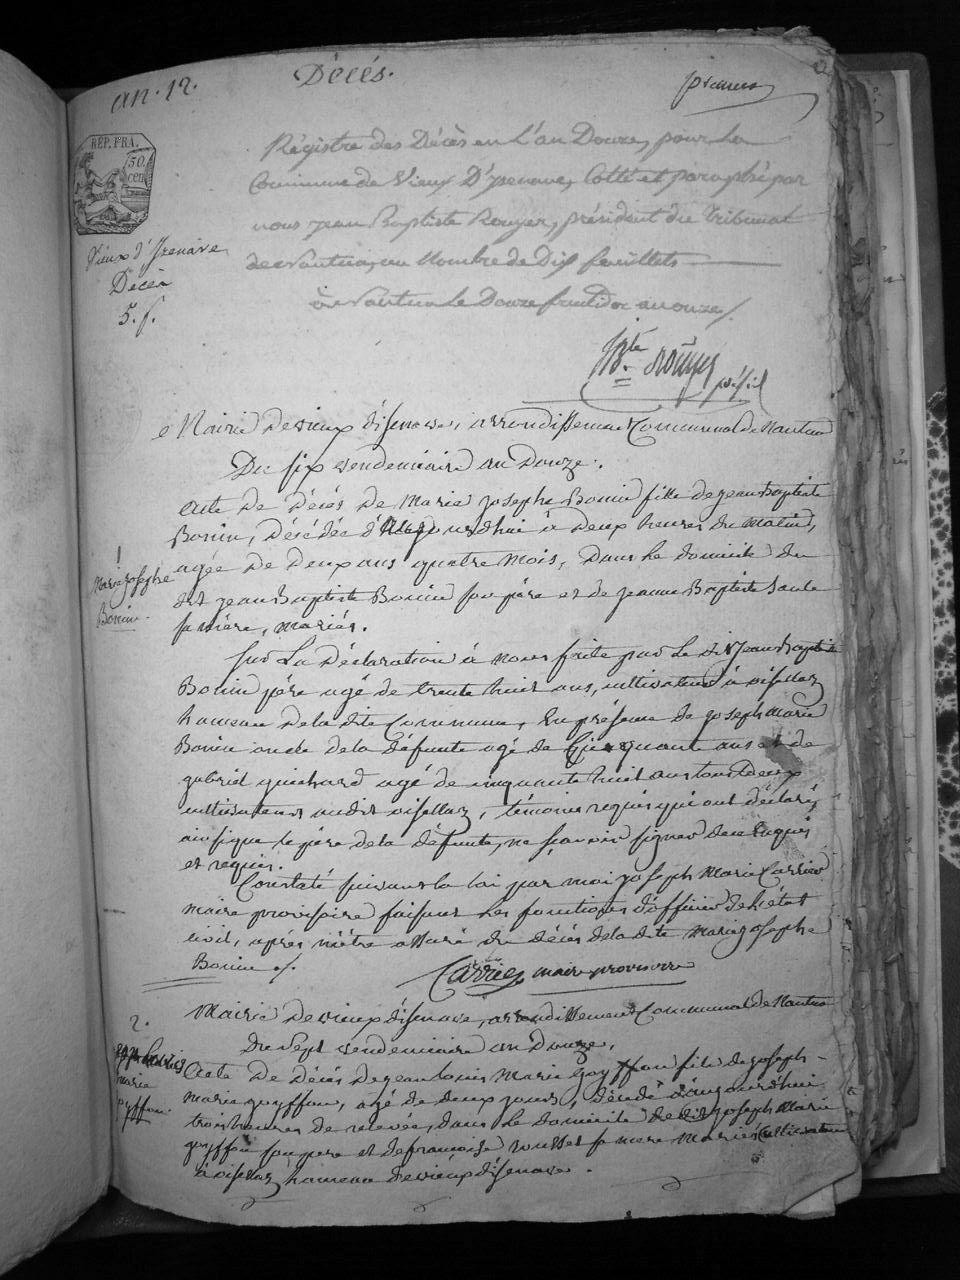 an. 12.
Décés.
premier
RÉP. FRA.
50.
cen.
Vieux d'Isenave
Décès
5. f.
Régistre des Décès en L'an Douze, pour La
Commune de Vieux D'Isenave, Cotté et paraphé par
nous jean Baptiste Rouyer, président du Tribunal
de Nantua, au Nombre de Dix feuillets
à Nantua Le Douze fructidor an onze /.
JBte Rouyer
Mairie de vieux disenave, arrondissement Communal de Nantua
Du six vendemiaire an Douze.
Acte de Décés de Marie josephe Bonin fille de jean Baptiste
Bonin, Décédée d'aujourdhui à deux heures du Matin,
agée de Deux ans quatre mois, Dans le domicile du
dit jean Baptiste Bonin son père et de jeanne Baptiste
sa mère, mariés.
1
Marie josephe
Bonin.
sur La Déclaration à nous faite par le dit Jean Baptiste
Bonin père agé de trente huit ans, cultivateur à
hameau de la dite Commune, En présence de joseph marie
Bonin oncle de la défunte agé de Cinquante ans et de
gabriel guichard agé de cinquante huit ans tous Deux
cultivateurs audit, témoins requis qui ont déclaré,
ainsi que le père de la défunte, ne scavoir signer de ce Enquis
et requis.
Constaté suivant la loi par moi joseph Marie Carrier
maire provisoire faisant les fonctions d'officier de l'état
civil, après m'être assuré du décés de la dite Marie josephe
Bonin ./.
Carrier maire provisoire
Mairie de vieux disenave, arrondissement Communal de Nantua
Du sept vendemiaire an Douze.
2.
jean Louis
marie
goyffon.
Acte de Décés de jean louis Marie goyffon fils de joseph
marie goyffon, agé de deux jours, décédé d'aujourd'hui
trois heures de relevée, dans le domicile de dit joseph Marie
goyffon son pere et de francoise rousset sa mere Mariés Cultivateur
à hameau de vieux disenave.